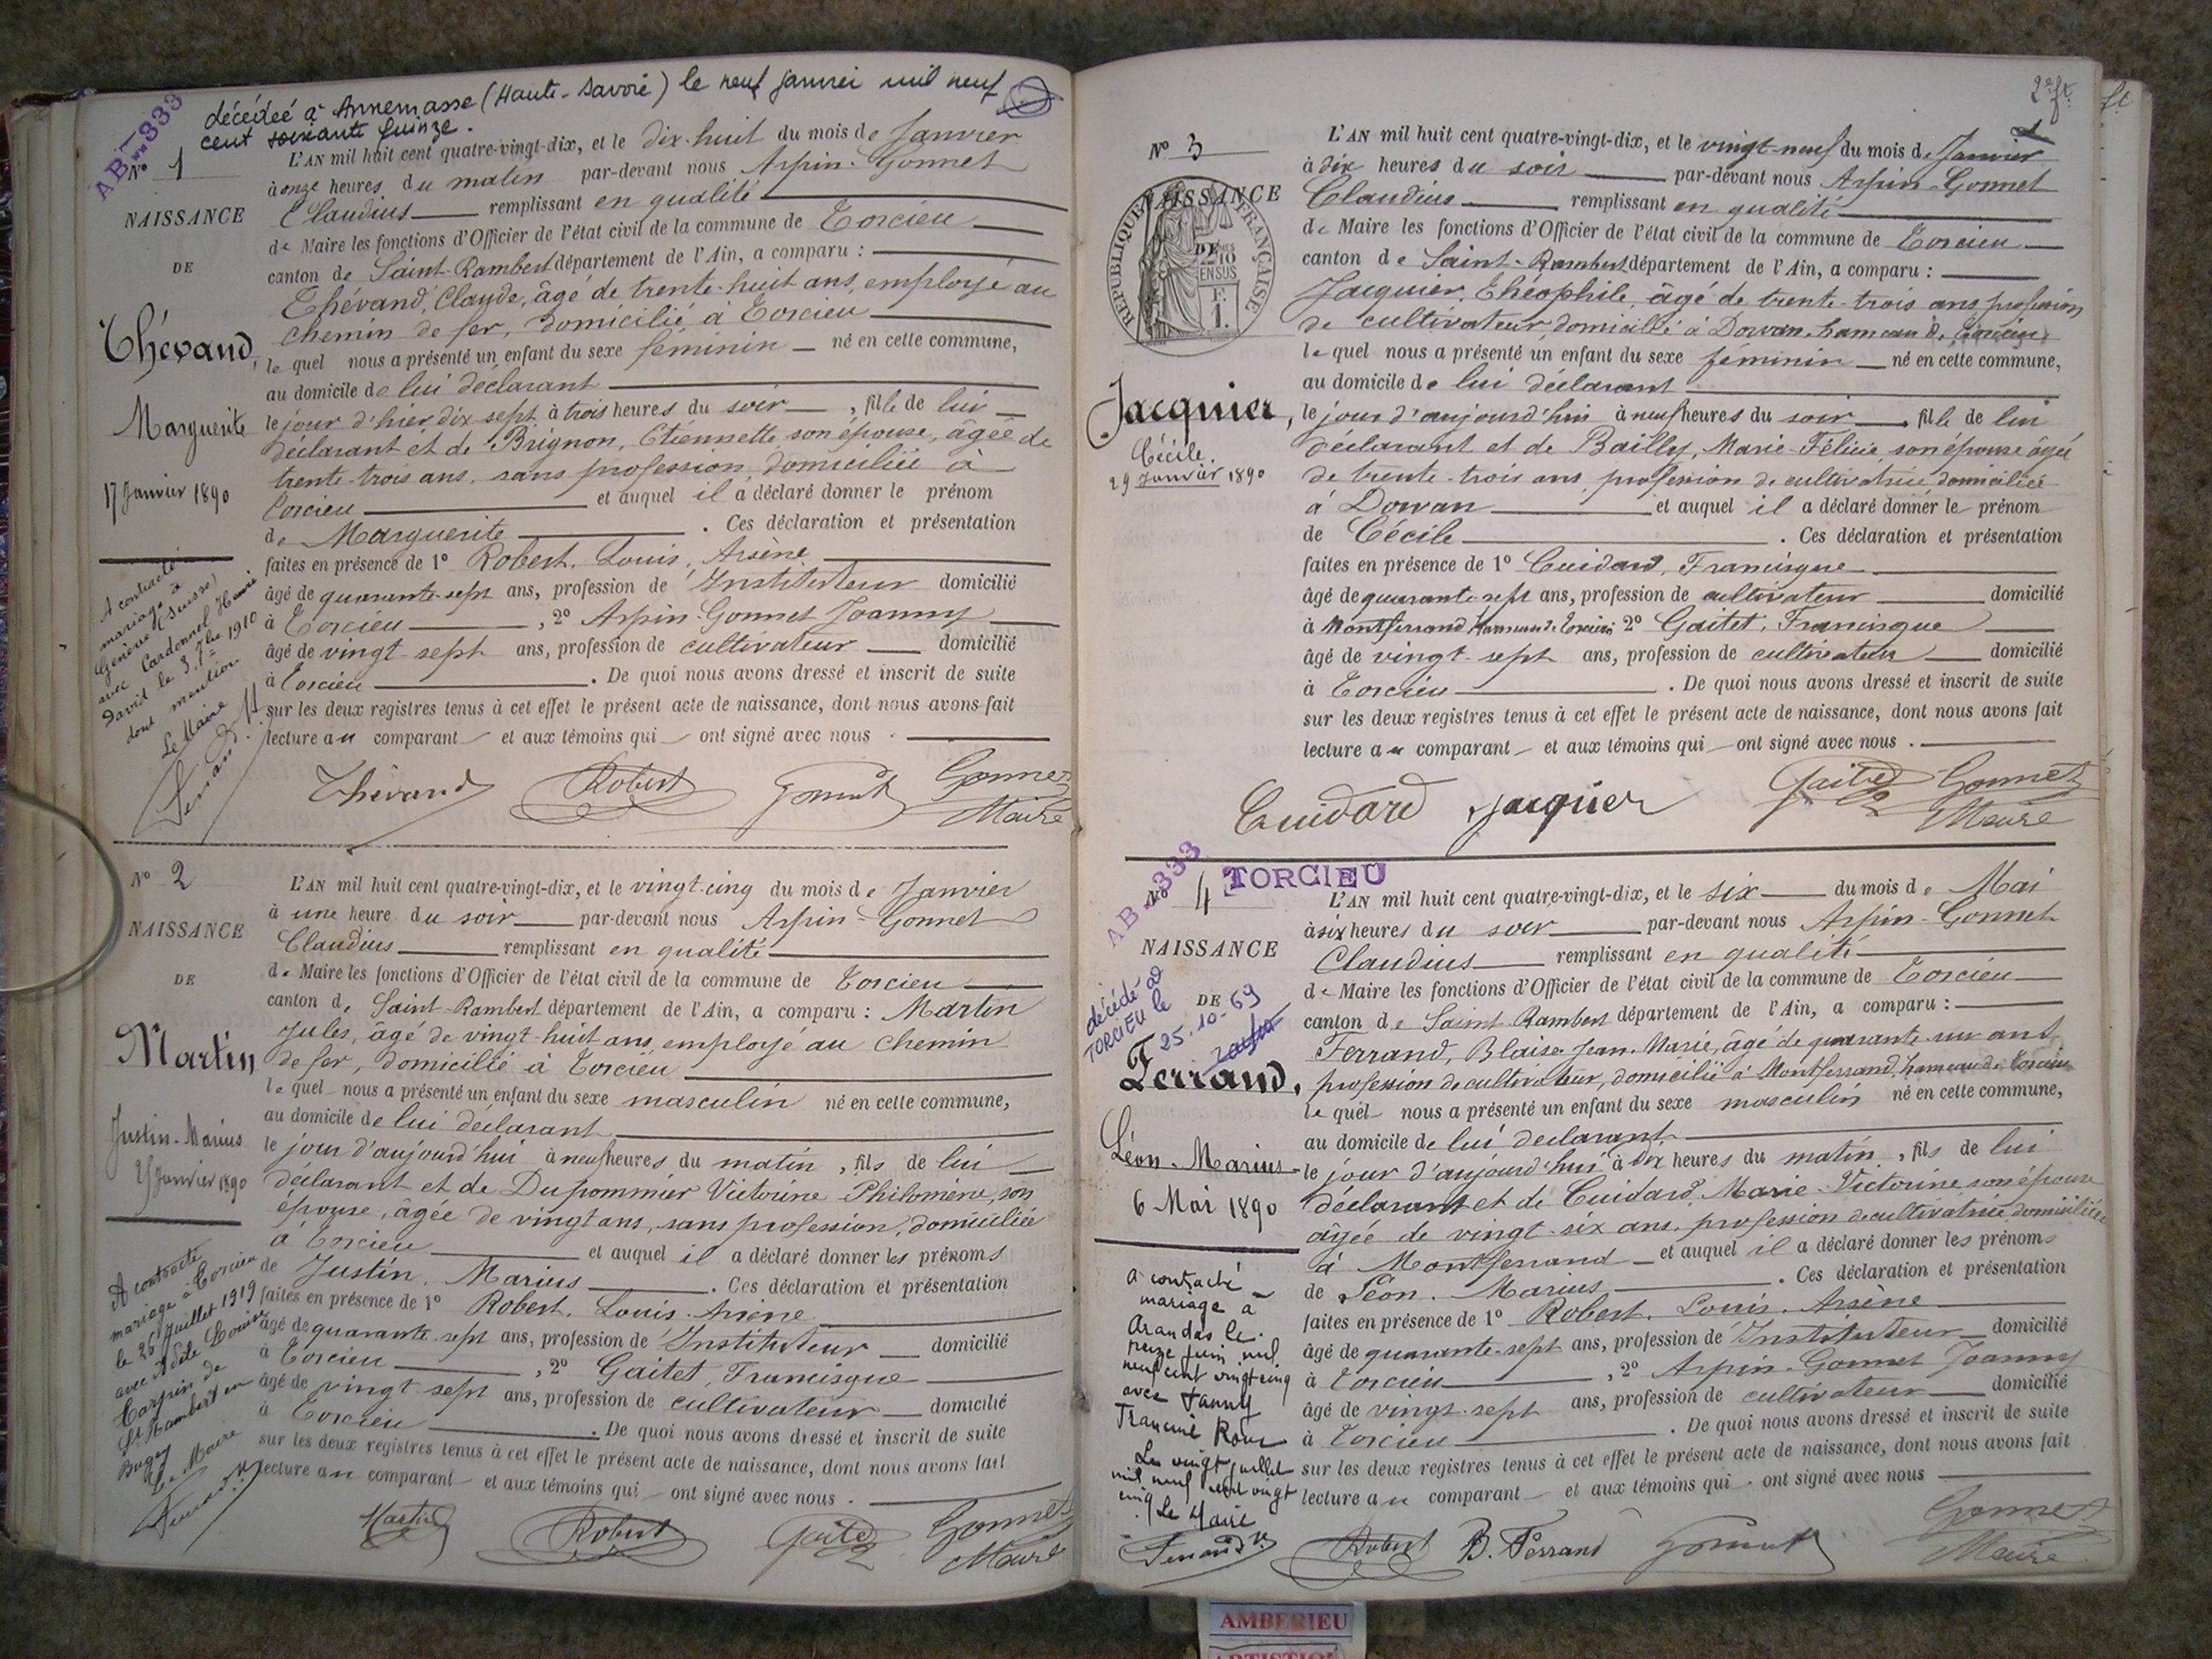 décédée à Annemasse (Haute-Savoie) le neuf janvier mil neuf
cent soixante quinze.
AB 333
No 1
NAISSANCE
DE
Thévand,
Marguerite
17 Janvier 1890
A contracté
mariage à
Genève (Suisse)
avec Cardonnel Henri
David le 3 7bre 1910
dont mention
Le Maire
L'AN mil huit cent quatre-vingt-dix, et le dix-huit du mois de Janvier
à onze heures du matin par-devant nous Arpin-Gonnet
Claudius remplissant en qualité
de Maire les fonctions d'Officier de l'état civil de la commune de Torcieu
canton de Saint-Rambert département de l'Ain, a comparu :
Thévand, Claude, âgé de trente-huit ans, employé au
chemin de fer, domicilié à Torcieu
lequel nous a présenté un enfant du sexe féminin né en cette commune,
au domicile de lui déclarant
le jour d'hier, dix sept, à trois heures du soir, fille de lui
déclarant et de Brignon, Etiennette son épouse, âgée de
trente-trois ans, sans profession, domiciliée à
Torcieu et auquel il a déclaré donner le prénom
de Marguerite . Ces déclaration et présentation
faites en présence de 1º Robert, Louis, Arsène
âgé de quarante-sept ans, profession de Instituteur domicilié
à Torcieu , 2º Arpin-Gonnet Joanny
âgé de vingt-sept ans, profession de cultivateur domicilié
à Torcieu . De quoi nous avons dressé et inscrit de suite
sur les deux registres tenus à cet effet le présent acte de naissance, dont nous avons fait
lecture au comparant et aux témoins qui ont signé avec nous .
Thévand Robert Gonnet Gonnet
Maire
No 2
NAISSANCE
DE
Martin
Justin-Marius
25 Janvier 1890
A contracté
mariage à Torcieu
le 26 Juillet 1919
avec Adèle Louise
Carpin de
St Rambert en
Bugey
Le Maire
L'AN mil huit cent quatre-vingt-dix, et le vingt-cinq du mois de Janvier
à une heure du soir par-devant nous Arpin-Gonnet
Claudius remplissant en qualité
de Maire les fonctions d'Officier de l'état civil de la commune de Torcieu
canton de Saint-Rambert département de l'Ain, a comparu : Martin
Jules, âgé de vingt-huit ans, employé au chemin
de fer, domicilié à Torcieu
lequel nous a présenté un enfant du sexe masculin né en cette commune,
au domicile de lui déclarant
le jour d'aujourd'hui à neuf heures du matin, fils de lui
déclarant et de Dupommier Victorine Philomène, son
épouse, âgée de vingt ans, sans profession, domiciliée
à Torcieu et auquel il a déclaré donner les prénoms
de Justin, Marius . Ces déclaration et présentation
faites en présence de 1º Robert, Louis Arsène
âgé de quarante-sept ans, profession de Instituteur domicilié
à Torcieu , 2º Gaitet, Francisque
âgé de vingt sept ans, profession de cultivateur domicilié
à Torcieu . De quoi nous avons dressé et inscrit de suite
sur les deux registres tenus à cet effet le présent acte de naissance, dont nous avons fait
lecture au comparant et aux témoins qui ont signé avec nous .
Martin Robert Gaitet Gonnet
Maire
2e ft.
No 3
NAISSANCE
DE
RÉPUBLIQUE FRANÇAISE
Jacquier,
Cécile.
29 Janvier 1890
L'AN mil huit cent quatre-vingt-dix, et le vingt-neuf du mois de Janvier
à dix heures du soir par-devant nous Arpin-Gonnet
Claudius remplissant en qualité
de Maire les fonctions d'Officier de l'état civil de la commune de Torcieu
canton de Saint-Rambert département de l'Ain, a comparu :
Jacquier, Théophile, âgé de trente-trois ans profession
de cultivateur, domicilié à Dorvan, hameau de Torcieu,
lequel nous a présenté un enfant du sexe féminin né en cette commune,
au domicile de lui déclarant
le jour d'aujourd'hui à neuf heures du soir, fille de lui
déclarant et de Bailly, Marie-Félicie, son épouse âgée
de trente-trois ans, profession de cultivatrice domiciliée
à Dorvan et auquel il a déclaré donner le prénom
de Cécile . Ces déclaration et présentation
faites en présence de 1º Cuidard, Francisque
âgé de quarante-sept ans, profession de cultivateur domicilié
à Montferrand hameau de Torcieu 2º Gaitet, Francisque
âgé de vingt-sept ans, profession de cultivateur domicilié
à Torcieu . De quoi nous avons dressé et inscrit de suite
sur les deux registres tenus à cet effet le présent acte de naissance, dont nous avons fait
lecture au comparant et aux témoins qui ont signé avec nous .
Cuidard Jacquier Gaitet Gonnet
Maire
AB 333
No 4 TORCIEU
NAISSANCE
DE
décédé à
TORCIEU le
25-10-69
Ferrand,
Léon-Marius
6 Mai 1890
a contracté
mariage à
Arandas le
treize juin mil
neuf cent vingt cinq
avec Fanny
Francine Roux
Les vingt juillet
mil neuf cent vingt
cinq
Le Maire
L'AN mil huit cent quatre-vingt-dix, et le six du mois de Mai
à six heures du soir par-devant nous Arpin-Gonnet
Claudius remplissant en qualité
de Maire les fonctions d'Officier de l'état civil de la commune de Torcieu
canton de Saint-Rambert département de l'Ain, a comparu :
Ferrand, Blaise Jean-Marie, âgé de quarante-un ans
profession de cultivateur, domicilié à Montferrand, hameau de Torcieu
lequel nous a présenté un enfant du sexe masculin né en cette commune,
au domicile de lui déclarant
le jour d'aujourd'hui à dix heures du matin, fils de lui
déclarant et de Cuidard Marie-Victorine, son épouse
âgée de vingt-six ans, profession de cultivatrice domiciliée
à Montferrand et auquel il a déclaré donner les prénoms
de Léon, Marius . Ces déclaration et présentation
faites en présence de 1º Robert, Louis, Arsène
âgé de quarante-sept ans, profession de Instituteur domicilié
à Torcieu , 2º Arpin-Gonnet Joanny
âgé de vingt-sept ans, profession de cultivateur domicilié
à Torcieu . De quoi nous avons dressé et inscrit de suite
sur les deux registres tenus à cet effet le présent acte de naissance, dont nous avons fait
lecture au comparant et aux témoins qui ont signé avec nous
Robert B. Ferrand Gonnet Gonnet
Maire
AMBERIEU